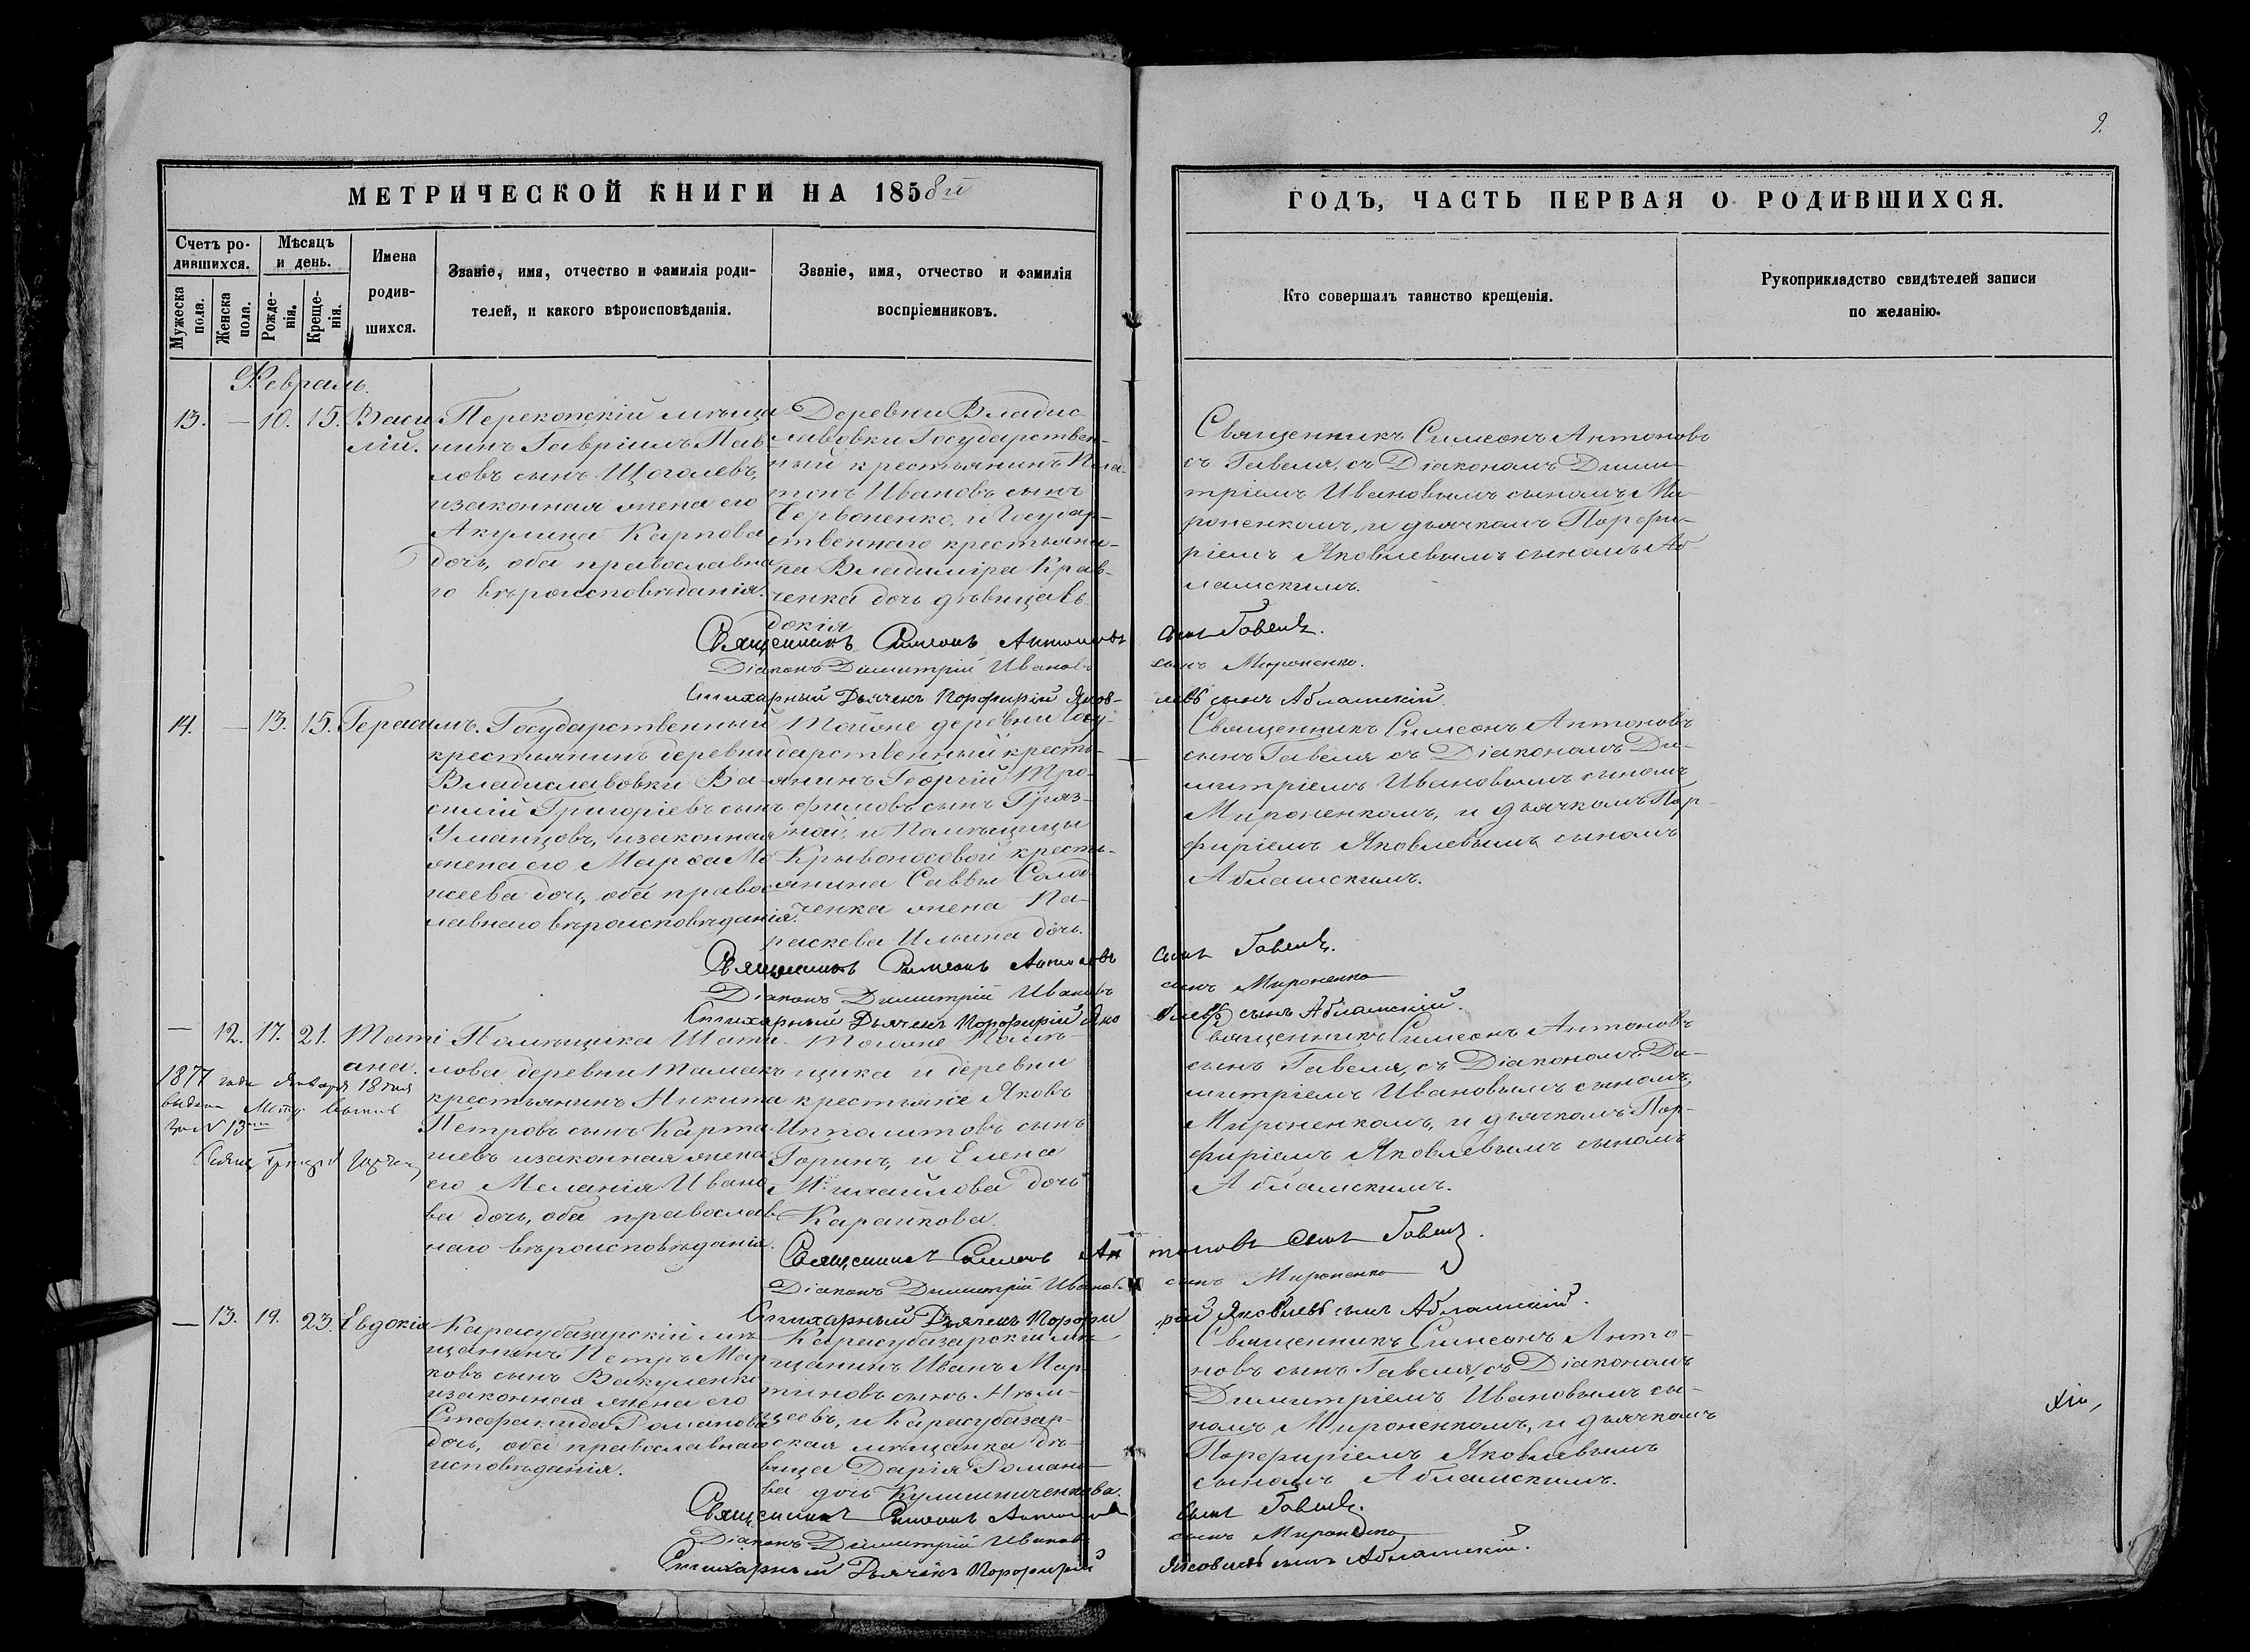 9.
МЕТРИЧЕСКОЙ КНИГИ НА 1858й
ГОДЪ, ЧАСТЬ ПЕРВАЯ О РОДИВШИХСЯ.
Счетъ ро-
дившихся.
Мужеска
пола.
Женска
пола.
Мѣсяцъ
и день.
Рожде-
нія.
Креще-
нія.
Имена
родив-
шихся.
Званіе, имя, отчество и фамилія роди-
телей, и какого вѣроисповѣданія.
Званіе, имя, отчество и фамилія
воспріемниковъ.
Кто совершалъ таинство крещенія.
Рукоприкладство свидѣтелей записи
по желанію.
Февраль.
13. — 10. 15. Васи
лій.
Перекопскій мѣща
нинъ Гавріилъ Пав
ловъ сынъ Щоголевъ,
изаконная жена его
Акулина Карпова
дочь, оба православна
го вѣроисповѣданія.
Деревни Владис
лавовки Государствен-
ный крестьянинъ Пла-
тонъ Ивановъ сынъ
Червоненко, и Государ-
ственнаго крестьяни-
на Владиміра Крав-
ченка дочь дѣвица Ев-
докія
Священникъ Симеонъ Антоновъ
съ Гавеля, съ Діакономъ Дими-
тріемъ Ивановымъ сыномъ Ми-
роненкомъ, и дьячкомъ Порфи-
ріемъ Яковлевымъ сыномъ Аб-
ламскимъ.
Священникъ Симеонъ Антоновъ сынъ Гавеля.
Діаконъ Димитрій Ивановъ сынъ Мироненко.
Стихарный Дьячекъ Порфирій Яков- левъ сынъ Абламскій.
14. — 13. 15. Герасимъ.
Государственный
крестьянинъ деревни
Владиславовки Ва-
силій Григоріевъ сынъ
Уманцовъ, изаконная
жена его Марфа Мо
исеева дочь, оба правос
лавнаго вѣроисповѣданія.
Тойже деревни Госу-
дарственный кресть-
янинъ Георгій Тро-
фимовъ сынъ Гряз-
ной, и Помѣщицы
Крывоносовой кресть-
янина Саввы Солод
ченка жена Па-
раскева Ильина дочь.
Священникъ Симеонъ Антоновъ
сынъ Гавеля съ Діакономъ Ди-
митріемъ Ивановымъ сыномъ
Мироненкомъ, и дьячкомъ Пор-
фиріемъ Яковлевымъ сыномъ
Абламскимъ.
Священникъ Симеонъ Антоновъ сынъ Гавеля.
Діаконъ Димитрій Ивановъ сынъ Мироненко
Стихарный Дьячекъ Порфирій Яко влевъ сынъ Абламскій.
— 12. 17. 21. Таті
ана.
1877 года Января 18 дня
выдана Метр. выпись
за № 13мъ
Помѣщика Шати-
лова деревни Тамакъ
крестьянинъ Никита
Петровъ сынъ Карта
шевъ изаконная жена
его Меланія Ивано
ва дочь, оба православ
наго вѣроисповѣданія.
Тогоже Помѣ-
щика и деревни
крестьяне Яковъ
Ипполитовъ сынъ
Горинъ, и Елена
Михайлова дочь
Карайкова.
Священникъ Симеонъ Антоновъ
сынъ Гавеля, съ Діакономъ Ди-
митріемъ Ивановымъ сыномъ,
Мироненкомъ, и дьячкомъ Пор-
фиріемъ Яковлевымъ сыномъ
Абламскимъ.
Священникъ Симеонъ Ан тоновъ сынъ Гавеля.
Діаконъ Димитрій Ивановъ сынъ Мироненко
Стихарный Дьячекъ Порфи рій Яковлевъ сынъ Абламскій.
— 13. 19. 23. Евдокія
Карасубазарскій мѣ
щанинъ Петръ Мар
ковъ сынъ Вакуленко
изаконная жена его
Стефанида Романова
дочь, оба православнаго
исповѣданія.
Карасубазарскій мѣ
щанинъ Иванъ Мар
тиновъ сынъ Нѣм-
цевъ, и Карасубазар-
ская мѣщанка дѣ-
вица Дарія Романо-
ва дочь Кулишниченкова.
Священникъ Симеонъ Анто-
новъ сынъ Гавеля, съ Діакономъ
Димитріемъ Ивановымъ сы-
номъ Мироненкомъ, и дьячкомъ
Порфиріемъ Яковлевымъ
сыномъ Абламскимъ.
Священникъ Симеонъ Антоновъ сынъ Гавеля.
Діаконъ Димитрій Ивановъ сынъ Мироненко
Стихарный Дьячекъ Порфирій Яковлевъ сынъ Абламскій.